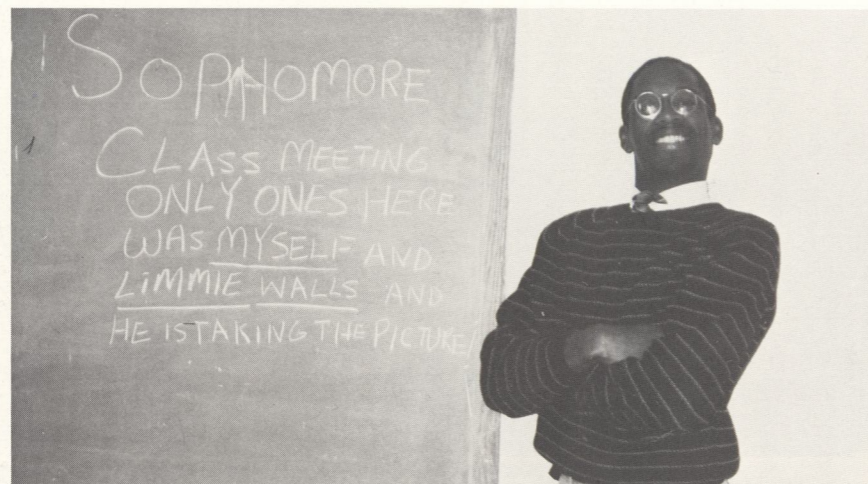 SOPHOMORE
CLASS MEETING
ONLY ONES HERE
WAS MYSELF AND
LIMMIE WALLS AND
HE IS TAKING THE PICTURE!